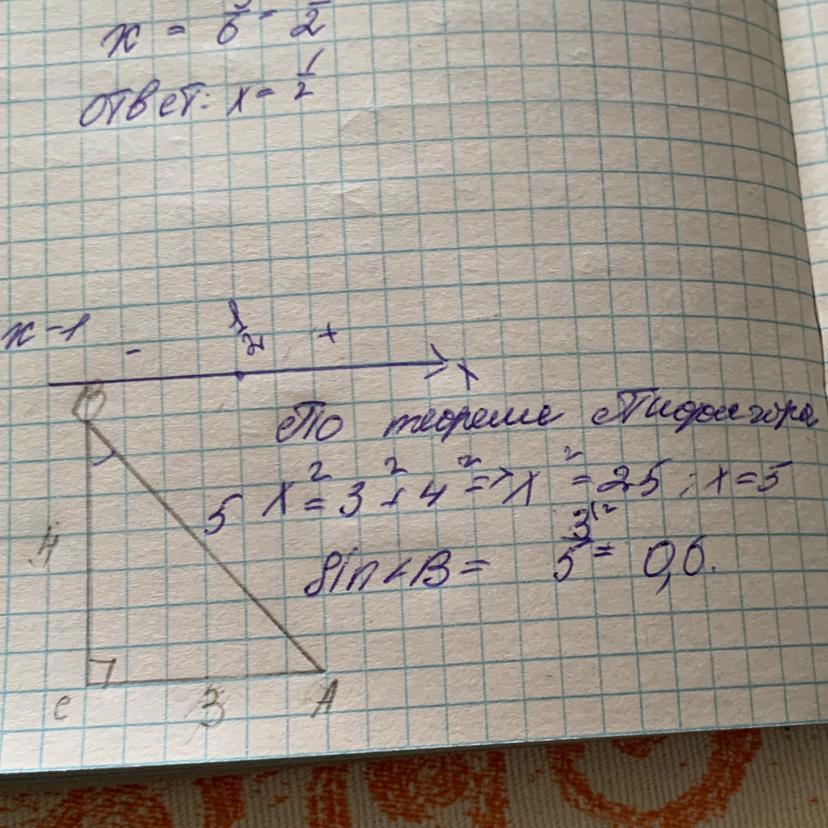 x = 3/6 = 1/2
ответ: x = 1/2
x-1 - 1/2 + x
B
По теореме Пифагора
4 5 x² = 3² + 4² => x² = 25; x = 5
sin ∠B = 3/5 = 0,6.
C 3 A